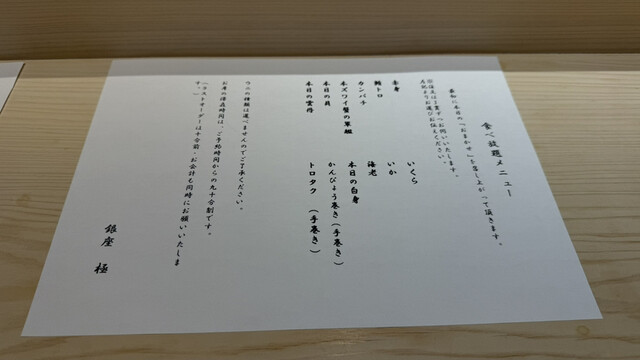 食べ放題メニュー
最初に本日の「おまかせ」を召し上がって頂きます。
注文は
お選びお伝えください。
赤身
鯛トロ
カンパチ
本ズワイ蟹の軍艦
本日の貝
本日の雲丹
いくら
いか
海老
本日の白身
かんぴょう巻き(手巻き)
トロタク (手巻き)
ウニの種類は選べませんのでご了承ください。
お席の滞在時間は、ご予約時間からの九十分制です。
(ラストオーダーは十分前、お会計も同時にお願いいたします。)
銀座 極